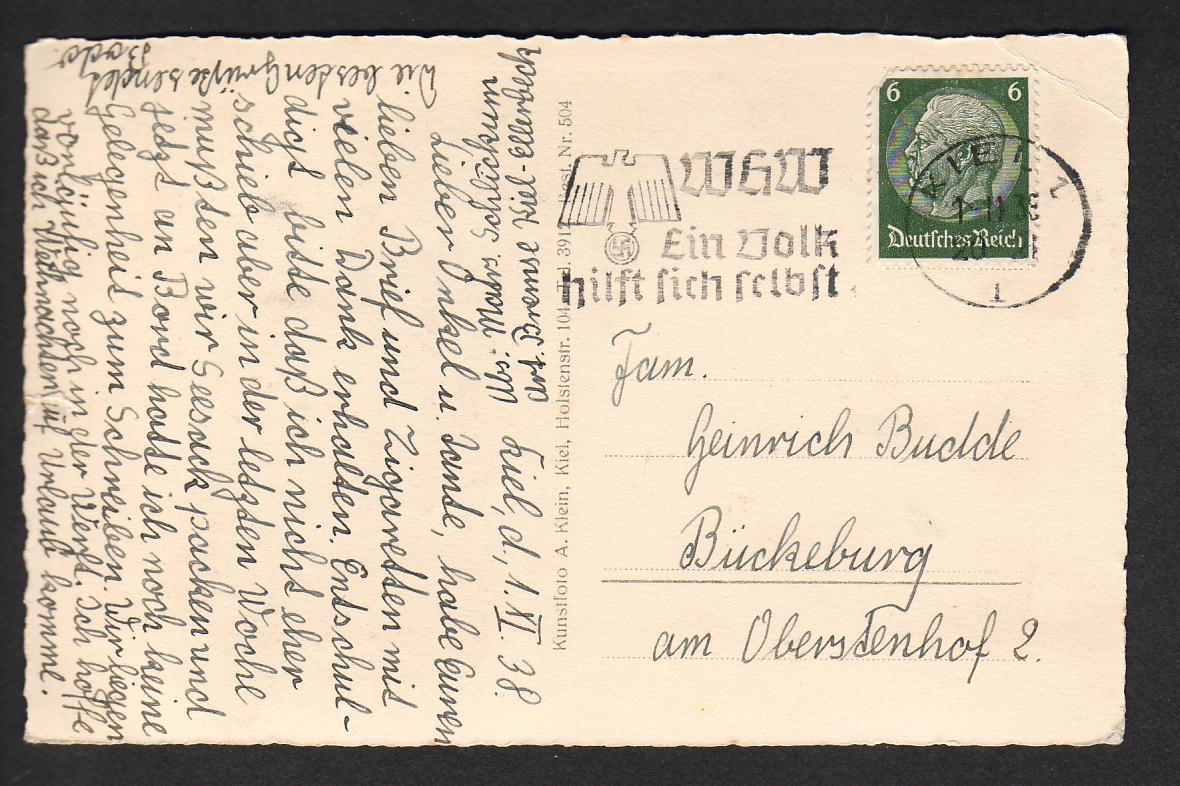 Kiel, d. 1. XI. 38.
Lieber Onkel u. Tante, habe Euren
lieben Brief und Zigaretten mit
vielen Dank erhalten. Entschul-
digt bitte daß ich nicht eher
schrieb aber in der letzten Woche
mußten wir Seesack packen und
jetzt an Bord hatte ich noch keine
Gelegenheit zum Schreiben. Wir liegen
vorläufig noch in der Werft. Ich hoffe
daß ich Weihnachten auf Urlaub komme.
Die besten Grüße sendet
Bodo
Abs: Matrs.
Bremse Kiel-Ellerbeck
Kunstfoto A. Klein, Kiel, Holstenstr. 104 Nr. 504
WHW
Ein Volk
hilft sich selbst
6 6
Deutsches Reich
KIEL 1
Fam.
Heinrich Budde
Bückeburg
am Oberstenhof 2.